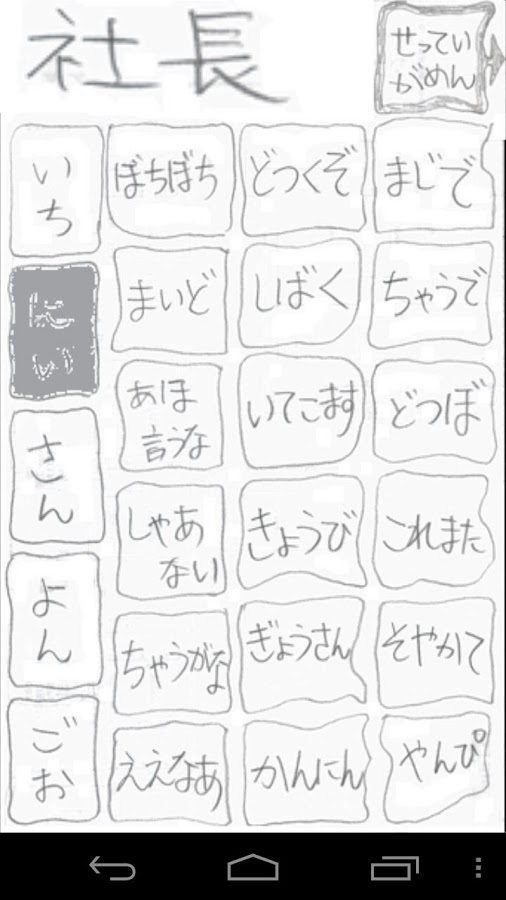 社長
せってい
がめん
いち
にい
さん
よん
ごお
ぼちぼち
どつくぞ
まじで
まいど
しばく
ちゃうで
あほ
言うな
いてこます
どつぼ
しゃあ
ない
きょうび
これまた
ちゃうがな
ぎょうさん
そやかて
ええなあ
かんにん
やんぴ